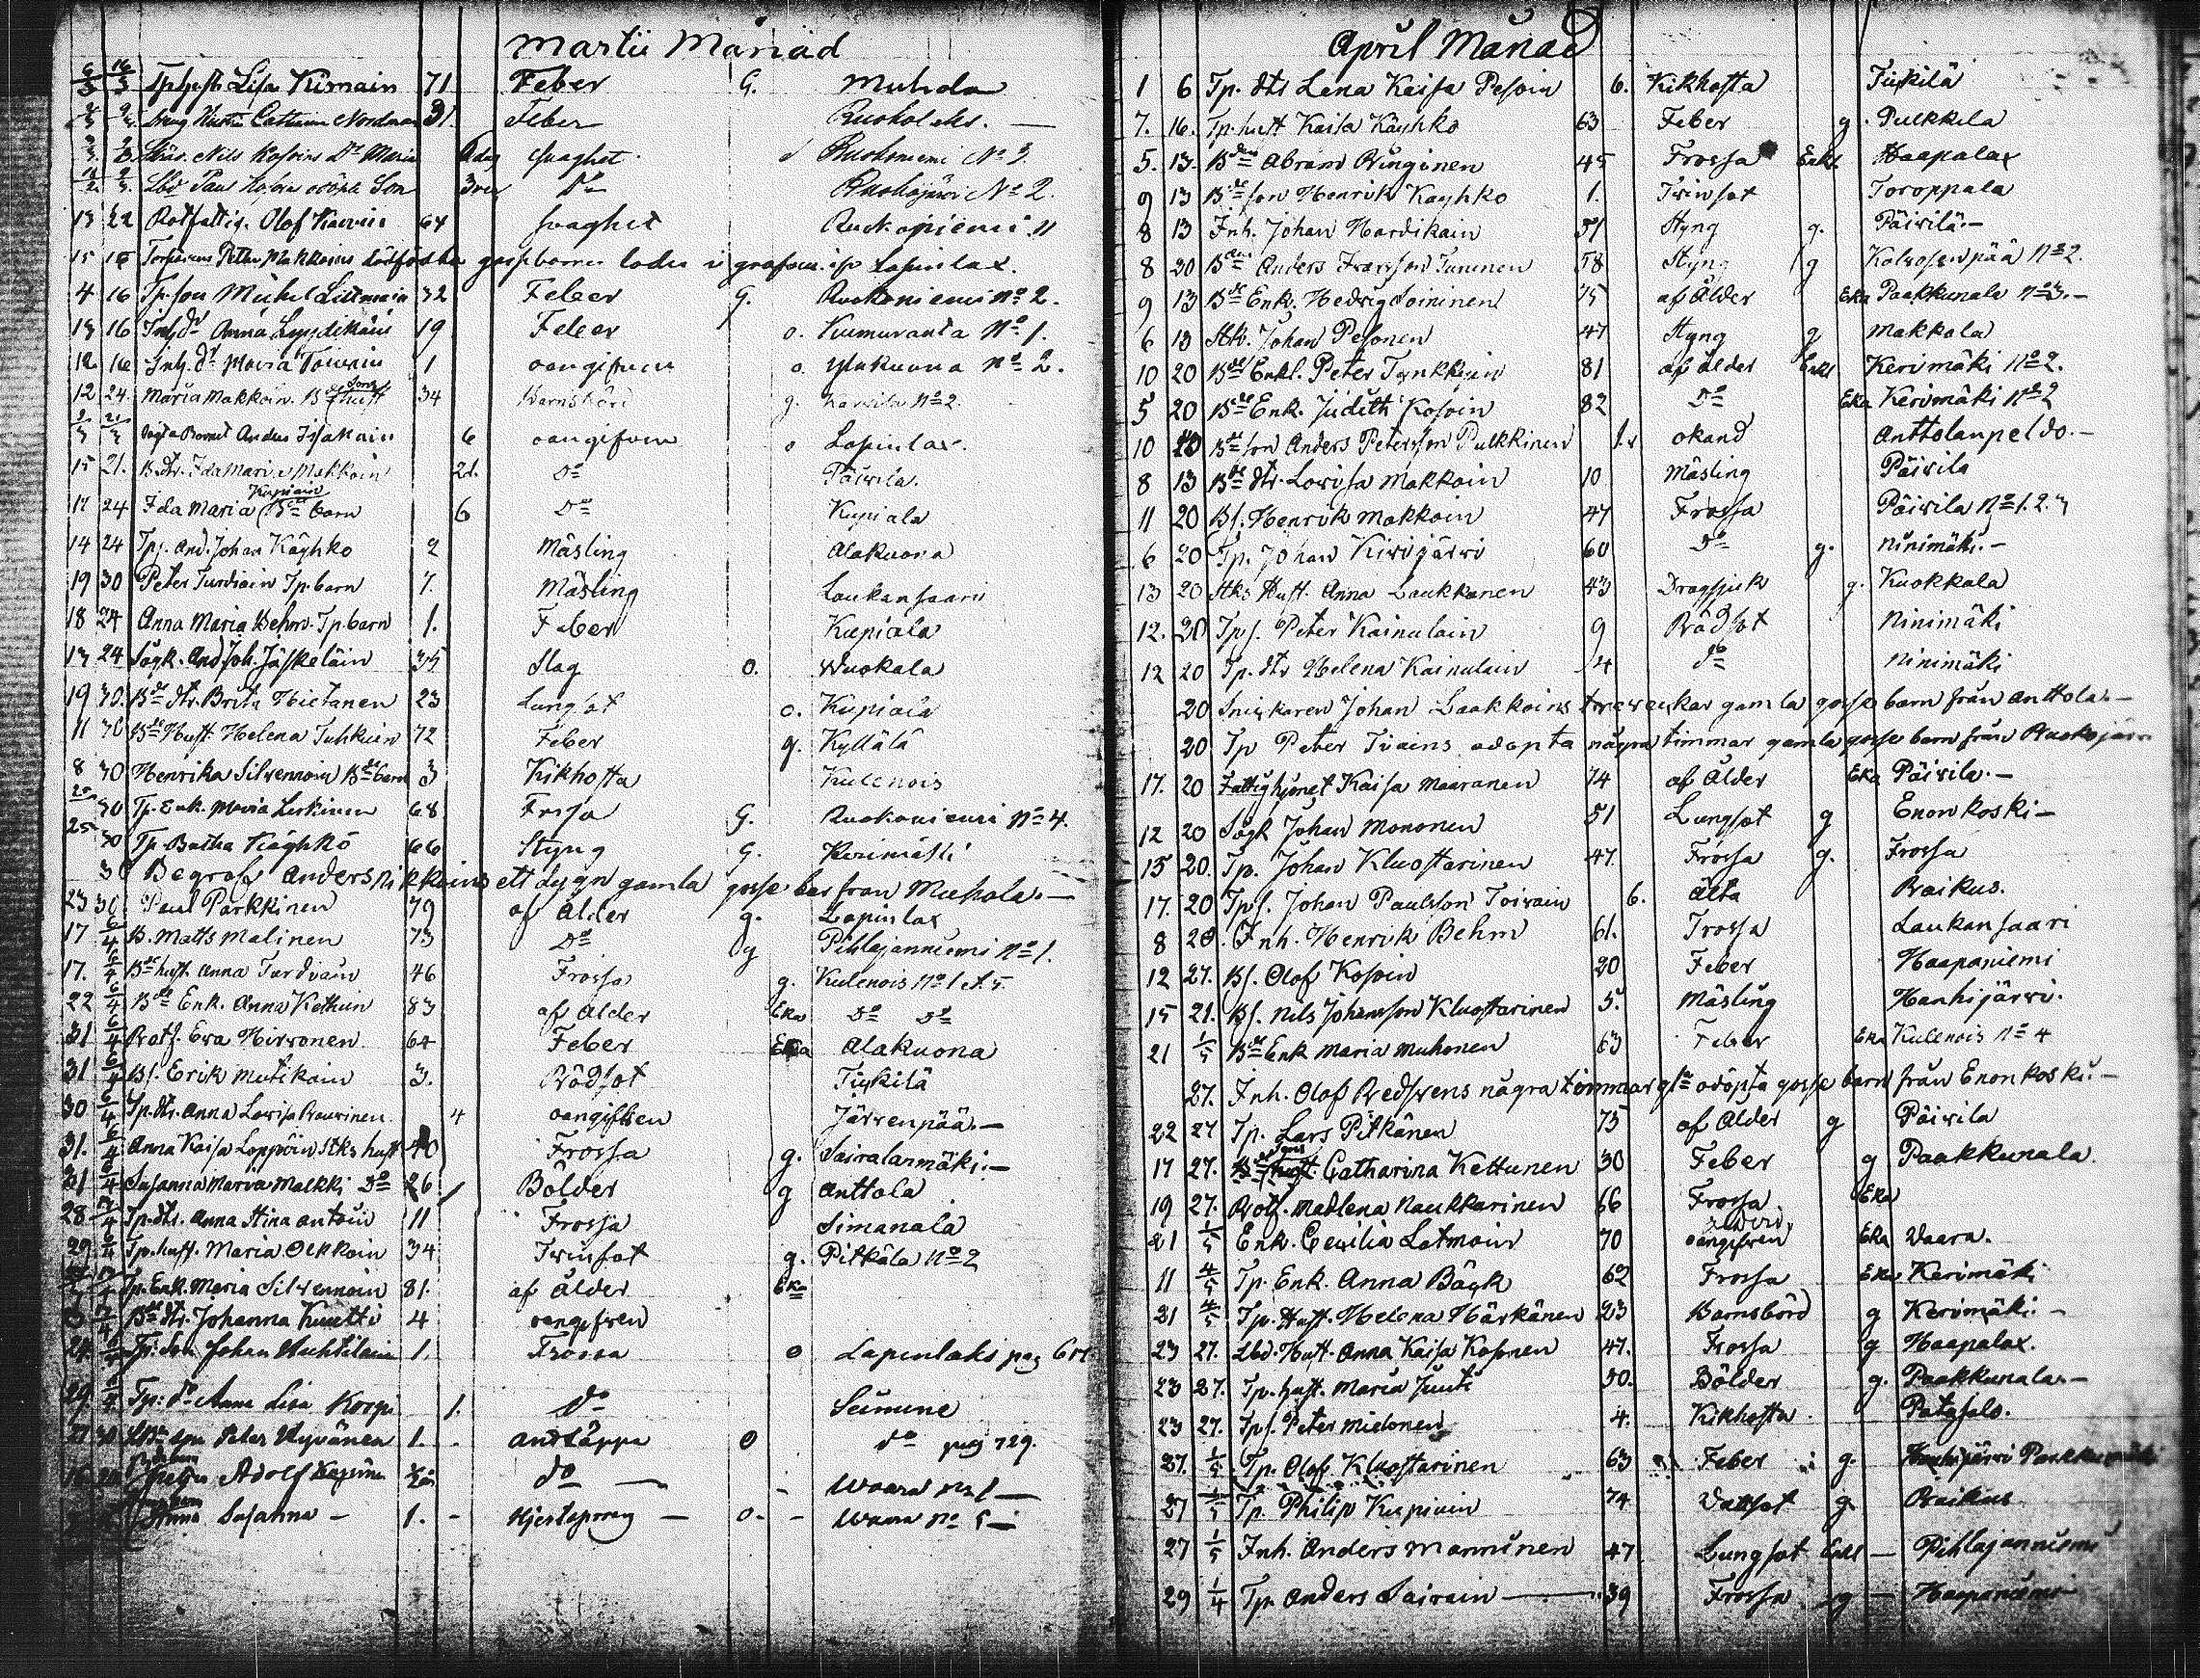 Martii Månad
6/3 16/3 Lisa Kirnain 71 Feber G. Muhola
Cattrina Nordman 31. Feber Ruokol
Nils Kosoins Dr Maria dag svaghet Ruokoniemi No 3.
Lbd Paul odöpte Son 3 Do No 2.
13 22 Rotfattig. Olof 64 svaghet 11
15 Peter Makkoins dödfödda gossebarn lades i grafven Lapinlax.
4 16 Tp. son Michel 32 Feber G. Ruokoniemi No 2.
13 16 Inh. dr Anna Lyydikäin 19 Feber o. Kumuranta No 1.
12 16 Inh. dr Maria Toivain 1 oangifven o. Ylakuona No 2.
12 24 Maria Makkoin. Bde sons hust 34 Barnsbörd g. No 2.
Barnet Anders Isakain 6 oangifven o Lapinlax.
15 21. B. dtr. Ida Maria Makkoin 21. Do Päivila.
17 24 Ida Maria Kupiain Bde barn 6 Do Kupiala
14 24 Tps. And. Johan Käyhkö 2 Mäsling Alakuona
19 30 Peter Turdiain Tp. barn 7. Mäsling Laukansaari
18 24 Anna Maria Behm. Tp barn 1. Feber Kupiala
13 24 Sågk. And. Joh. Jäskeläin 35 Slag o. Wuokala
19 30. Bde dtr. Brita Hietanen 23 Lungsot o. Kupiala
11 30 Bde Hust. Helena Tuhkuin 72 Feber g. Kyllälä
8 30 Henrika Silvennoin Bde barn 3 Kikhosta Kulenois
25 30 Tp. Enk. Maria Leskinen 68 Frossa G. Ruokoniemi No 4.
25 30 Tp. Käyhkö 66 Styng G. Kerimäki
30 Begrofs Anders ett dygn gamla gosse barn från Muhola. —
23 30 Paul Parkkinen 79 af ålder g. Lapinlax
17 6/4 B. Matts Malinen 73 Do g Pihlajanniemi No 1.
17. 6/4 Bde hust. Anna Turdiain 46 Frossa g. Kulenois No 1 et 5.
22 6/4 Bde Enk. Anna Kettuin 83 af ålder Eka Do Do
31 6/4 Rotf. Eva Hirvonen 64 Feber Eka Alakuona
31 6/4 Bs. Erik Mutikain 3. Rödsot Tiykilä
30 6/4 Tp. dtr. Anna Lovisa 4 oangifven Järvenpää. —
31. 6/4 Anna Kaisa Loppöin Stks hust 40 Frossa g. Sairalanmäki. —
31 6/4 Susanna Maria Malkki Do 26 Bölder g Anttola
28 Tp. dtr. Anna Stina Antoin 11 Frossa Simanala
29 6/4 Tp. hust. Maria Olkkoin 34 Tvinsot g. Pitkälä No 2
Tp. Enk. Maria Silvennoin 81. af ålder Eka
Bde dtr. Johanna Kuutti 4 oangifven
24. Tp. Son Johan Huhtilain 1. Frossa o Lapinlaks pag
29. Tp: do Anna Lisa 1. Do
27 30 son Peter Hyvänen 1. Andtäppa o Do pag 729.
Adolf Do — Waara No 1 —
Susanna — 1. — Hjertsprang — o. — Waara No 5 —
April Månad
1 6 Tp. dtr Lena Kaisa Pesoin 6. Kikhosta Tiykilä
7. 16. Tp. hust Kaisa Käyhkö 63 Feber g. Pulkkila
5. 13. Bden Abram Runginen 45 Frossa Enkl. Haapalax
9 13 Bde son Henrik Kayhko 1. Tvinsot Toroppala
8 13 Inh. Johan Hardikain 51 Styng g. Päivilä. —
8 20 Bden Anders Fransson Turunen 58 Styng g Kolvosenpää No 2.
9 13 Bde Enk. Hedvig Soininen 75 af ålder Eka Paakkunala No 3. —
6 13 Stk. Johan Pesonen 47 Styng g Makkola
10 20 Bde Enkl. Peter Tynkkuin 81 af ålder Enkl Kerimäki No 2.
5 20 Bde Enk. Judith Kosoin 82 Do Eka Kerimäki No 2
10 20 Bde son Anders Petersson Pulkkinen 1.v okänd Anttolanpeldo. —
8 13 Bde dtr. Lovisa Makkoin 10 Mäsling Päivila
11 20 Bs. Henrik Makkoin 47 Frossa Päivila No 1. 2.
6 20 Tp. Johan Kirvijärvi 60 Do g. Ninimäki. —
13 20 Stks Hust. Anna Laukkanen 43 Dragsjuk g. Kuokkala
12. 20 Tps. Peter Kainulain 9 Rödsot Ninimäki
12 20 Tp. dtr Helena Kainulain 4 do Ninimäki
20 Snickaren Johan Laakkoins tre veckar gamla gosse barn från Anttola. —
20 Tp Peter Tviains odöpta några timmar gamla gosse barn från
17. 20 Fattighjonet Kaisa Maaranen 74 af ålder Eka Päivila. —
12 20 Sågk Johan Mononen 51 Lungsot g Enonkoski —
15 20. Tp. Johan Kluostarinen 47. Frossa g. Frossa
17. 20 Tps. Johan Paulsson Toivain 6. Älta Raikus.
8 20. Inh. Henrik Behm 61. Frossa Laukansaari
12 27. Bs. Olof Kosoin 20 Feber Haapaniemi
15 21. Bs. Nils Johansson Kluostarinen 5. Mäsling Hanhijärvi.
21 1/5 Bde Enk Maria Muhonen 63 Feber Eka Kulenois No 4
27. Inh. Olof Redsvens några timmar gla odöpta gosse barn från Enonkoski. —
22 27 Tp. Lars Pitkänen 75 af ålder g Päivila
17 27. Catharina Kettunen 30 Feber g Paakkunala.
19 27. Rotf. Madlena Naukkarinen 66 Frossa Eka
21 1/5 Enk. Cecilia Latmoin 70 oangifven Eka Vaara.
11 4/5 Tp. Enk. Anna Bäck 62 Frossa Eka Kerimäki
21 4/5 Tp. Hust. Helena Härkänen 23 Barnsbörd g Kerimäki. —
23 27. Lbd. Hust. Anna Kaisa Kosonen 47. Frossa g Haapalax.
23 27. Tp. hust. Maria Juuti 50. Bölder g. Paakkunala. —
23 27. Tps. Peter Mielonen 4. Kikhosta Patasalo.
27. 1/5 Tp. Olof Kluostarinen 63 Feber g. Hanhijärvi
27 1/5 Tp. Philip Kupiain 74 Vattsot g. Raikus
27 1/5 Inh. Anders Manninen 47 Lungsot Enkl — Pihlajanniemi
29 1/4 Tp. Anders Sairain — 39 Frossa g — Haapaniemi